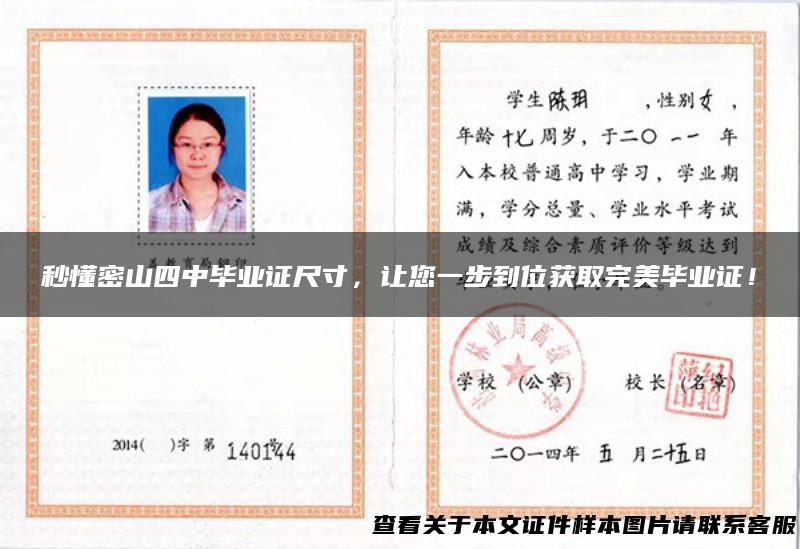 学生陈玥，性别女，
年龄十七周岁，于二〇一一年
入本校普通高中学习，学业期
满，学分总量、学业水平考试
成绩及综合素质评价等级达到
秒懂密山四中毕业证尺寸，让您一步到位获取完美毕业证！
林业局高级
学校 (公章) 校长 (名章)
2014( )字 第 140144 号
二〇一四年 五 月二十五日
查看关于本文证件样本图片请联系客服